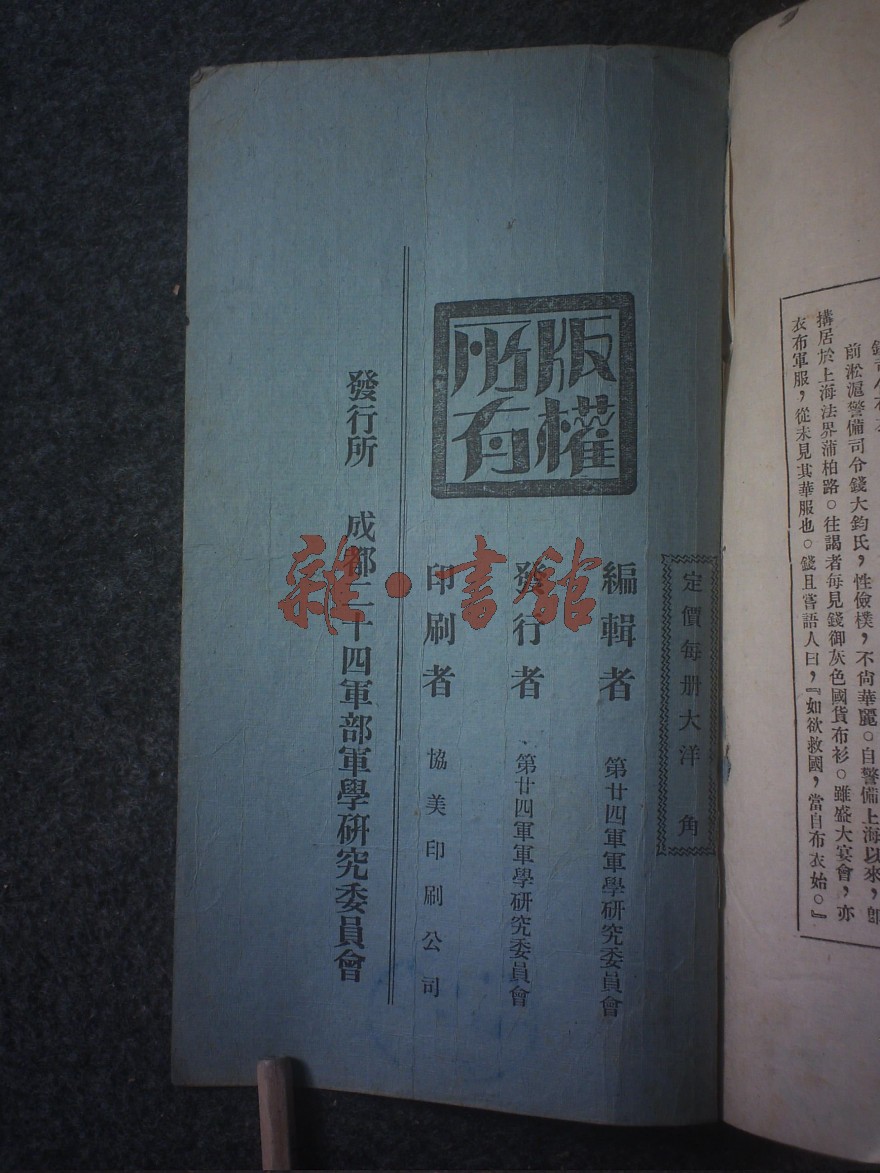 前淞滬警備司令錢大鈞氏，性儉樸，不尙華麗。自警備上海以來，卽
搆居於上海法界蒲柏路。往謁者每見錢御灰色國貨布衫。雖盛大宴會，亦
衣布軍服，從未見其華服也。錢且嘗語人曰，『如欲救國，當自布衣始。』
定價每册大洋　角
版權
所有
編輯者　第廿四軍軍學硏究委員會
發行者　第廿四軍軍學硏究委員會
印刷者　協美印刷公司
發行所　成都二十四軍部軍學硏究委員會
雜·書館